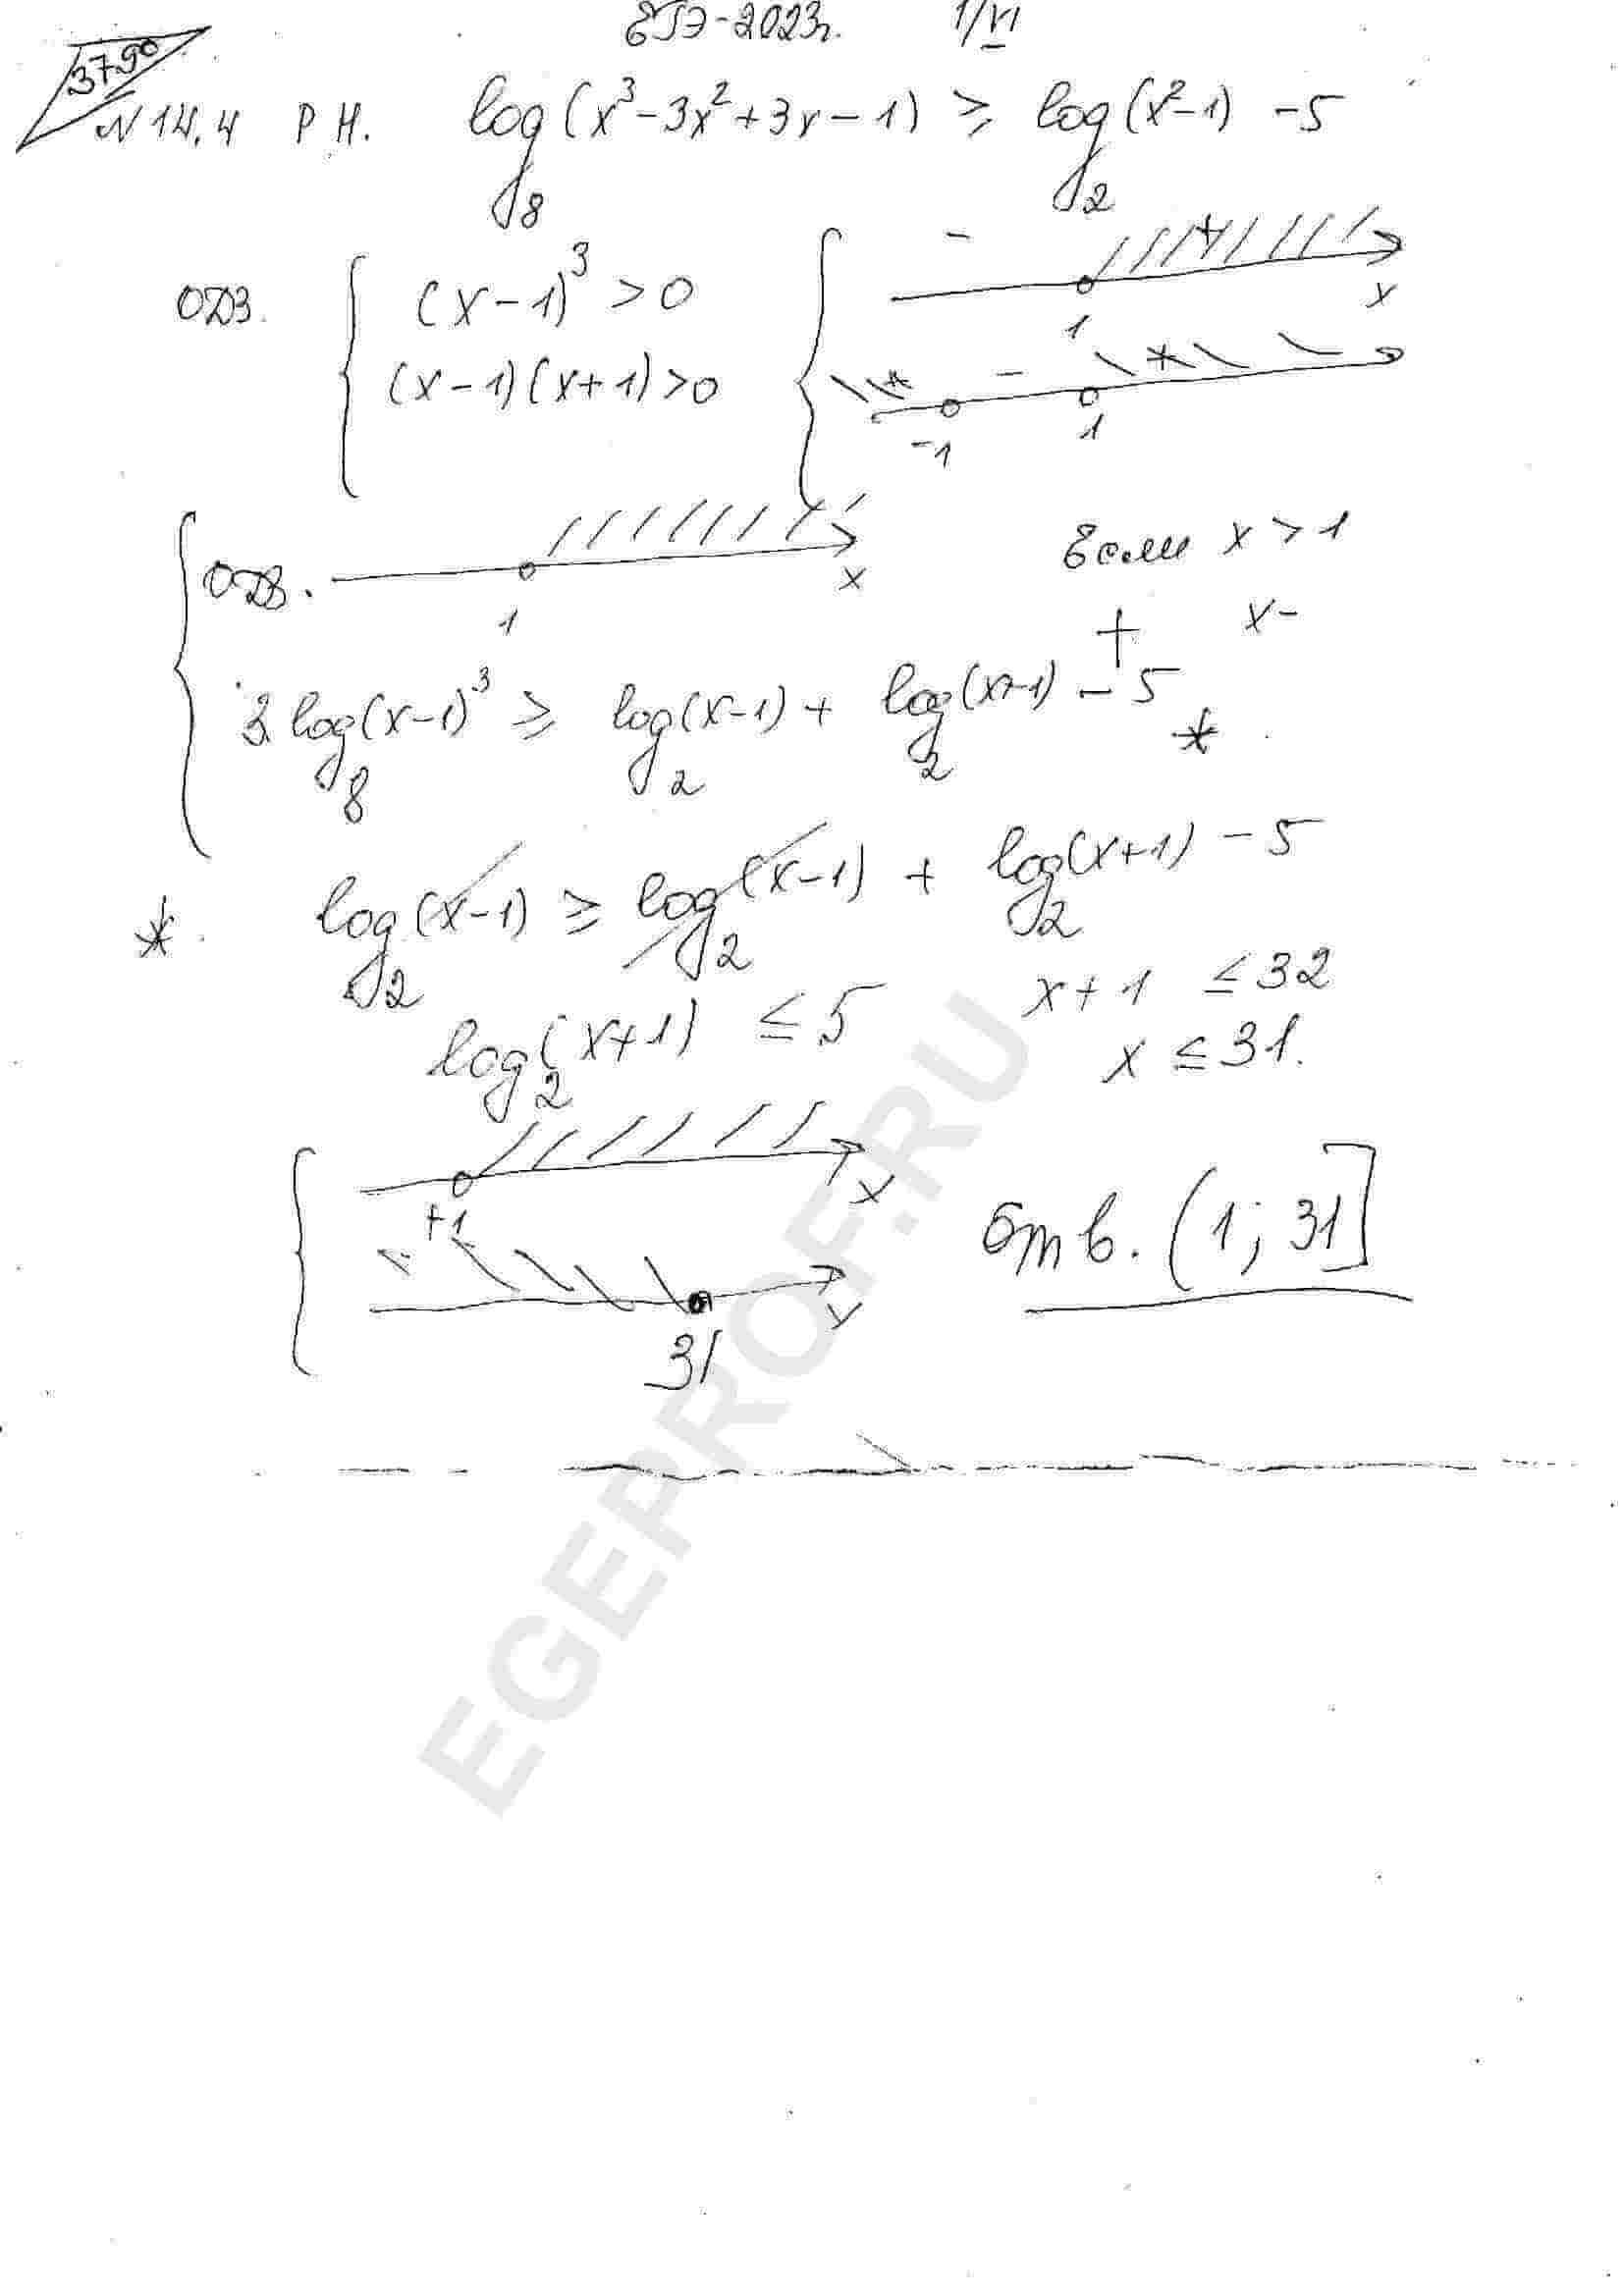 ЕГЭ-2023г. 1/VI
3790
N 14.4 РН. log₈(x³-3x²+3x-1) ≥ log₂(x²-1) -5
ОДЗ. { (x-1)³ >0
(x-1)(x+1)>0
{ - + 1 x
+ - + -1 1
{ ОДЗ. 1 x
Если x > 1
+ x-
3 log₈(x-1)³ ≥ log₂(x-1) + log₂(x+1) - 5 *
* log₂(x-1) ≥ log₂(x-1) + log₂(x+1) - 5
log₂(x+1) ≤ 5
x+1 ≤ 32
x ≤ 31.
{ +1 x
31
Отв. (1; 31]
EGEPROF.RU